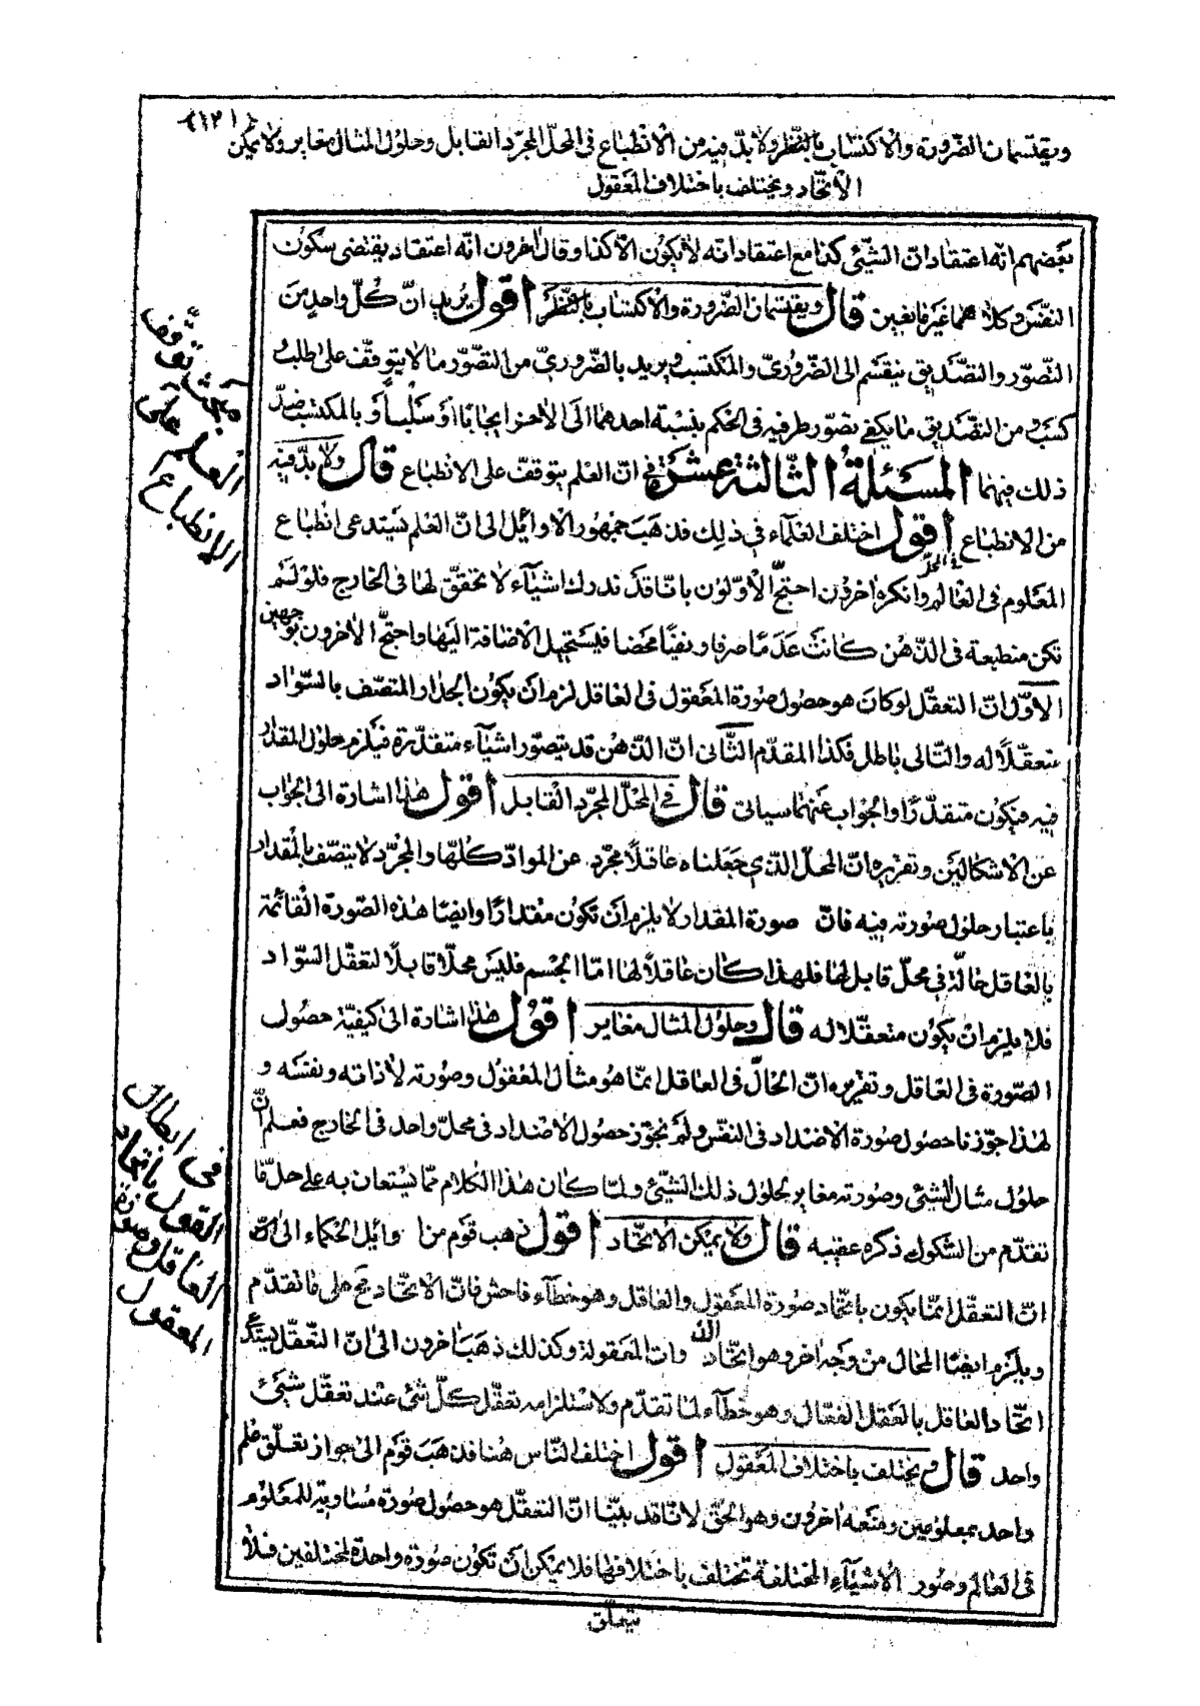 (١٢١)
ويقتسمان الضّرورة والاكتساب بالنّظر ولا بدّ فيه من الانطباع في المحلّ المجرّد القابل وحلول المثال مغاير ولا يمكن
الاتّحاد ويختلف باختلاف المعقول
بعضهم انه اعتقاد انّ الشّيئ كذا مع اعتقاد انه لا يكون الّا كذا وقال اخرون انّه اعتقاد يقتضى سكون
النّفس وكلاهما غير مانعين قال ويقتسمان الضّرورة والاكتساب بالنّظر اقول يريد انّ كلّ واحد من
التّصوّر والتّصديق ينقسم الى الضّروريّ والمكتسب ويريد بالضّروريّ من التّصوّر ما لا يتوقّف على طلب
كسب ومن التّصديق ما يكفي تصوّر طرفيه في الحكم بنسبة احدهما الى الاخر ايجابًا او سلبًا وبالمكتسب ضدّ
ذلك فيهما المسئلة الثّالثة عشرة في انّ العلم يتوقّف على الانطباع قال ولا بدّ فيه
من الانطباع اقول اختلف العلماء في ذلك فذهب جمهور الاوائل الى انّ العلم يستدعى انطباع
المعلوم في العالم وانكره اخرون احتجّ الاوّلون بانّا قد ندرك اشياء لا تحقّق لها في الخارج فلو لم
تكن منطبعة في الذّهن كانت عدمًا صرفا ونفيًا محضا فيستحيل الاضافة اليها واحتجّ الاخرون بوجهين
الاوّل انّ التعقّل لو كان هو حصول صورة المعقول في العاقل لزم ان يكون الجدار المتصّف بالسّواد
متعقّلًا له والتّالى باطل فكذا المقدّم الثّانى انّ الذّهن قد يتصوّر اشياء متقدّرة فيلزم حلول المقدار
فيه فيكون متقدّرًا والجواب عنهما سياتى قال في المحلّ المجرّد القابل اقول هذا اشارة الى الجواب
عن الاشكالين وتقريره انّ المحلّ الّذي جعلناه عاقلًا مجرّد عن الموادّ كلّها والمجرّد لا يتصّف بالمقدار
باعتبار حلول صورته فيه فانّ صورة المقدار لا يلزم ان تكون مقدارًا وايضا هذه الصّورة القائمة
بالعاقل حالّة في محلّ قابل لها فلهذا كان عاقلًا لها امّا الجسم فليس محلّا قابلًا لتعقّل السّواد
فلا يلزم ان يكون متعقّلا له قال وحلول المثال مغاير اقول هذا اشارة الى كيفيّة حصول
الصّورة في العاقل وتقريره انّ الحالّ في العاقل انّما هو مثال المعقول وصورته لا ذاته ونفسه و
لهذا جوّزنا حصول صورة الاضداد في النّفس ولم نجوّز حصول الاضداد في محلّ واحد في الخارج فعلم انّ
حلول مثال الشّيئ وصورته مغاير لحلول ذلك الشّيئ ولمّا كان هذا الكلام ممّا يستعان به على حلّ ما
تقدّم من الشّكوك ذكره عقيبه قال ولا يمكن الاتّحاد اقول ذهب قوم من اوائل الحكماء الى انّ
انّ التعقّل انّما يكون باتّحاد صورة المعقول والعاقل وهو خطآء فاحش فانّ الاتّحاد مح على ما تقدّم
ويلزم ايضًا المحال من وجه اخر وهو اتّحاد الذّوات المعقولة وكذلك ذهب اخرون الى انّ التّعقّل يستدعى
اتّحاد العاقل بالعقل الفعّال وهو خطآء لما تقدّم ولاستلزامه تعقّل كلّ شئ عند تعقّل شيئ
واحد قال ويختلف باختلاف المعقول اقول اختلف النّاس هنا فذهب قوم الى جواز تعلّق علم
واحد بمعلومين ومنعه اخرون وهو الحقّ لانّا قد بيّنّا انّ التعقّل هو حصول صورة مساوية للمعلوم
في العالم وصور الاشياء المختلفة تختلف باختلافها فلا يمكن ان تكون صورة واحدة لمختلفين فلا
يتعلّق
مبحث توقّف
العلم على
الانطباع
فى ابطال
القول باتّحاد
العاقل وصورة
المعقول